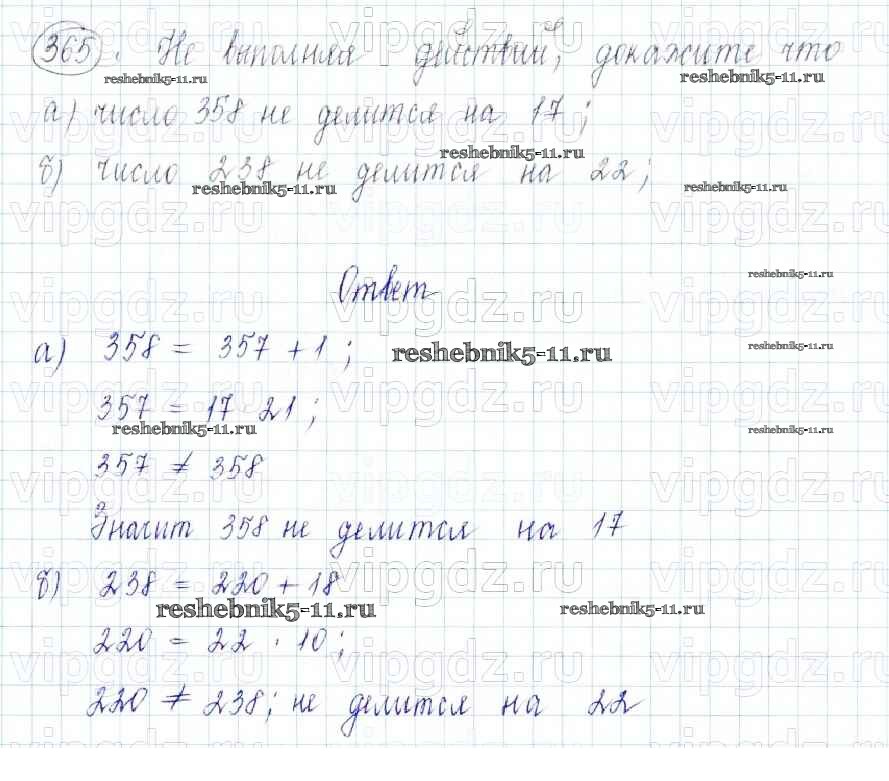 365. Не выполняя действий, докажите что
reshebnik5-11.ru reshebnik5-11.ru
а) число 358 не делится на 17;
reshebnik5-11.ru
б) число 238 не делится на 22;
reshebnik5-11.ru reshebnik5-11.ru
vipgdz.ru vipgdz.ru vipgdz.ru
reshebnik5-11.ru
Ответ
а) 358 = 357 + 1;
reshebnik5-11.ru reshebnik5-11.ru
357 = 17 · 21;
reshebnik5-11.ru reshebnik5-11.ru
357 ≠ 358
Значит 358 не делится на 17
б) 238 = 220 + 18
reshebnik5-11.ru reshebnik5-11.ru
220 = 22 · 10;
220 ≠ 238; не делится на 22